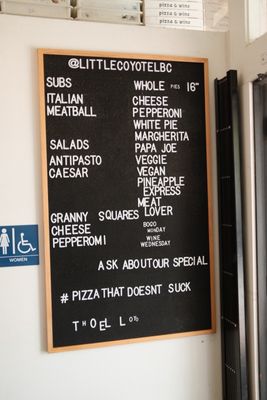 pizza & wine
pizza & wine
pizza & wine
pizza & wine
@LITTLECOYOTELBC
SUBS
ITALIAN
MEATBALL
SALADS
ANTIPASTO
CAESAR
GRANNY SQUARES
CHEESE
PEPPEROMI
WHOLE PIES 16"
CHEESE
PEPPERONI
WHITE PIE
MARGHERITA
PAPA JOE
VEGGIE
VEGAN
PINEAPPLE
EXPRESS
MEAT
LOVER
BOGO
MONDAY
WINE
WEDNESDAY
ASK ABOUT OUR SPECIAL
# PIZZA THAT DOESNT SUCK
WOMEN